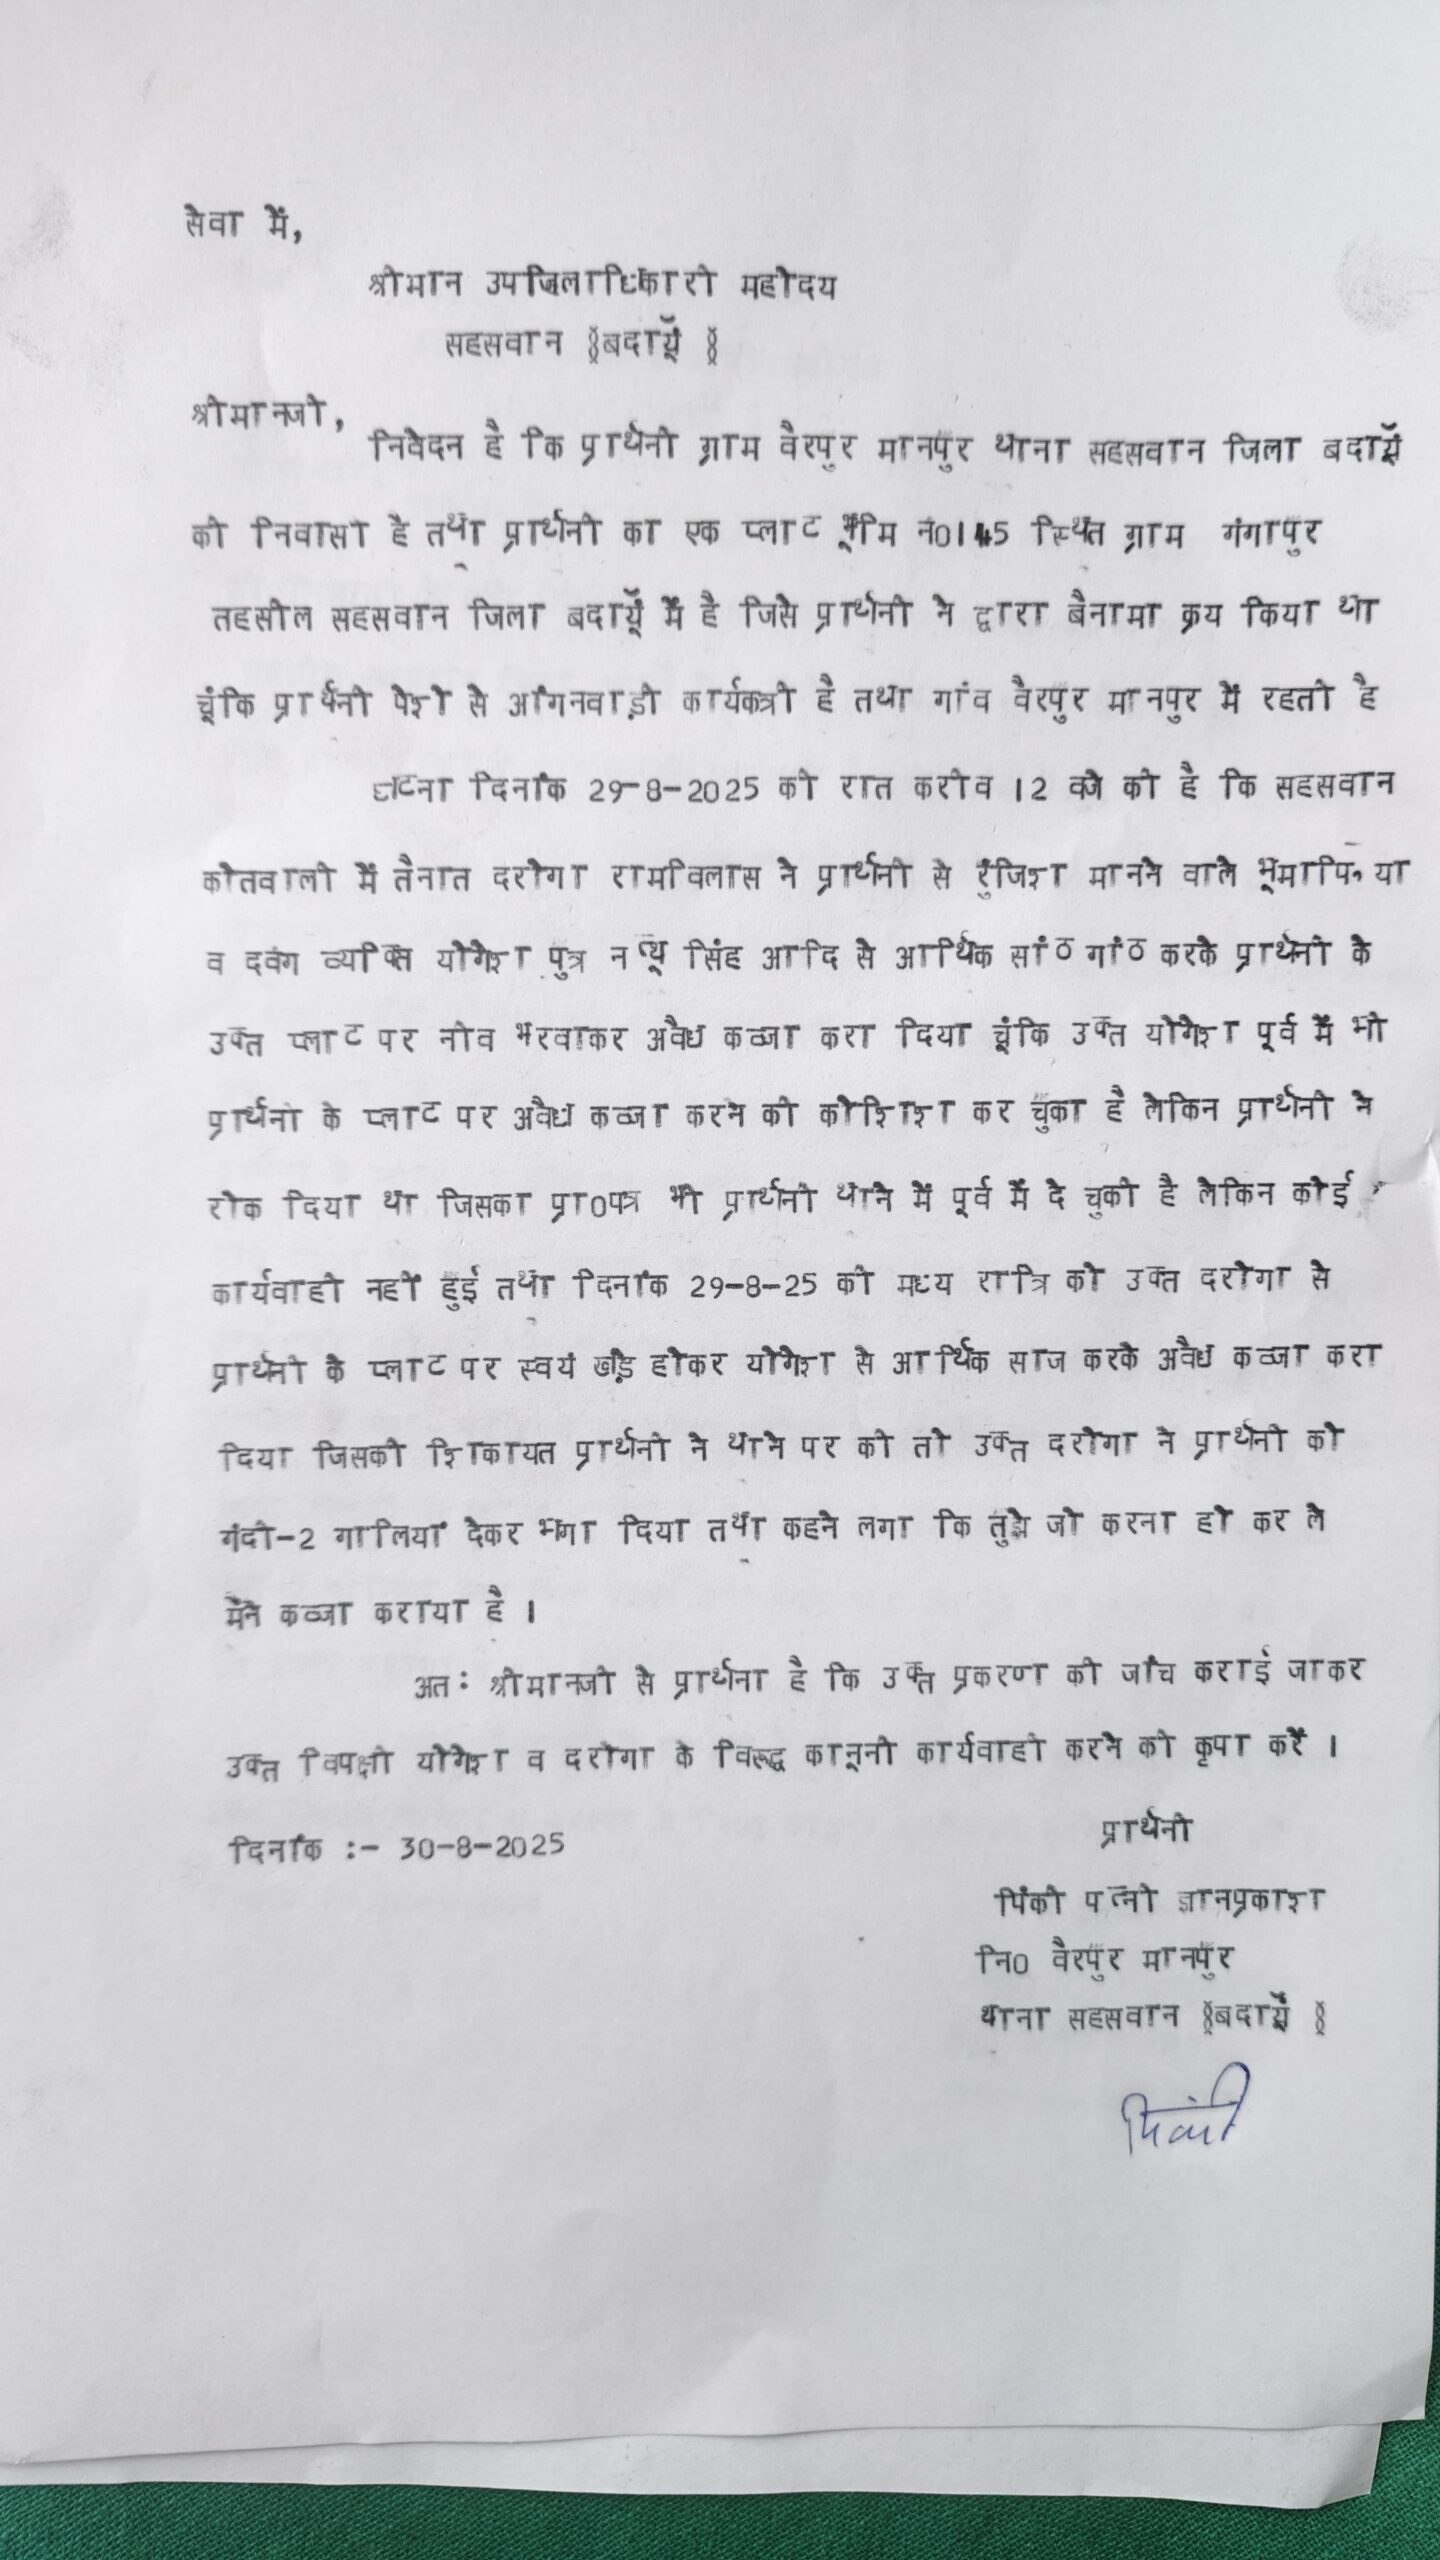 सेवा में,
श्रीमान उपजिलाधिकारी महोदय
सहसवान (बदायूँ)
श्रीमानजी,
निवेदन है कि प्रार्थनी ग्राम वैरपुर मानपुर थाना सहसवान जिला बदायूँ
की निवासी है तथा प्रार्थनी का एक प्लाट भूमि नं0 145 स्थित ग्राम गंगापुर
तहसील सहसवान जिला बदायूँ में है जिसे प्रार्थनी ने द्वारा बैनामा क्रय किया था
चूंकि प्रार्थनी पेशे से आंगनवाड़ी कार्यकत्री है तथा गांव वैरपुर मानपुर में रहती है
घटना दिनांक 29-8-2025 की रात करीव 12 वजे की है कि सहसवान
कोतवाली में तैनात दरोगा रामविलास ने प्रार्थनी से रंजिश मानने वाले भूमाफिया
व दवंग व्यक्ति योगेश पुत्र नत्थू सिंह आदि से आर्थिक सांठ गांठ करके प्रार्थनी के
उक्त प्लाट पर नीव भरवाकर अवैध कव्जा करा दिया चूंकि उक्त योगेश पूर्व में भी
प्रार्थनी के प्लाट पर अवैध कव्जा करने की कोशिश कर चुका है लेकिन प्रार्थनी ने
रोक दिया था जिसका प्रा0पत्र भी प्रार्थनी थाने में पूर्व में दे चुकी है लेकिन कोई
कार्यवाही नहीं हुई तथा दिनांक 29-8-25 की मध्य रात्रि को उक्त दरोगा से
प्रार्थनी के प्लाट पर स्वयं खड़े होकर योगेश से आर्थिक साज करके अवैध कव्जा करा
दिया जिसकी शिकायत प्रार्थनी ने थाने पर की तो उक्त दरोगा ने प्रार्थनी को
गंदी-2 गालियां देकर भगा दिया तथा कहने लगा कि तुझे जो करना हो कर ले
मैंने कव्जा कराया है ।
अत: श्रीमानजी से प्रार्थना है कि उक्त प्रकरण की जाँच कराई जाकर
उक्त विपक्षी योगेश व दरोगा के विरूद्ध कानूनी कार्यवाही करने की कृपा करें ।
दिनांक :- 30-8-2025
प्रार्थनी
पिंकी पत्नी ज्ञानप्रकाश
नि0 वैरपुर मानपुर
थाना सहसवान (बदायूँ)
पिंकी